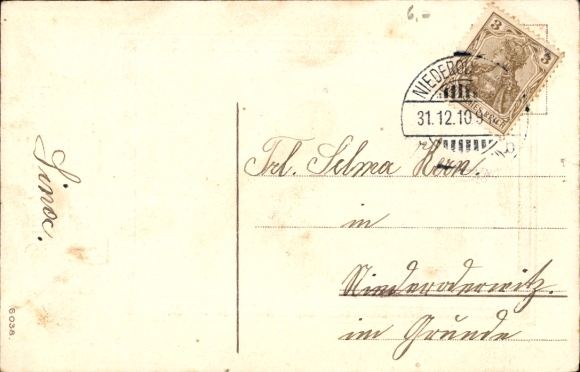 6,-
3 3
NIEDERO
31.12.10 9
Frl. Selma Kern.
in
Niederoderwitz.
im Grunde
6038.